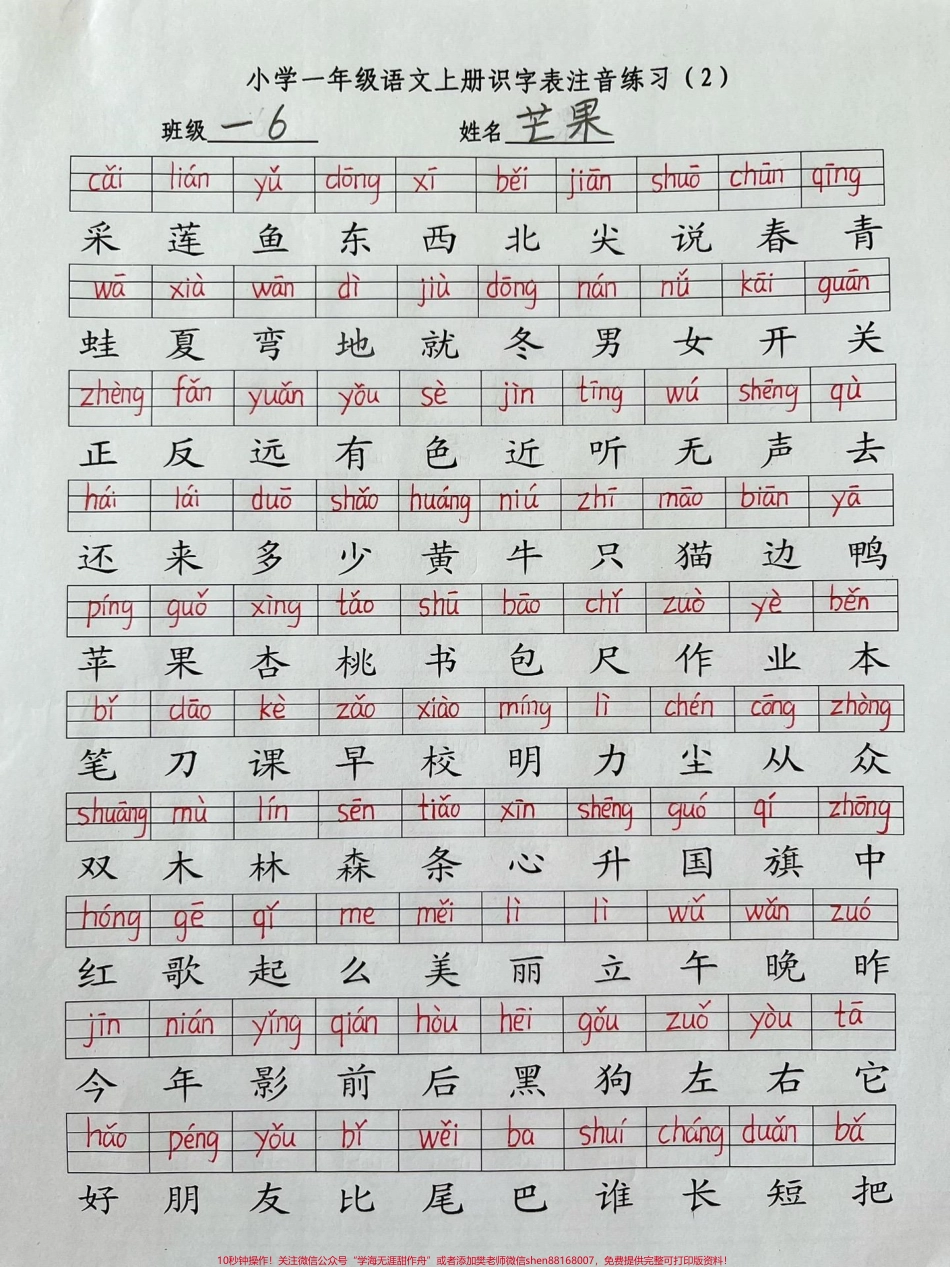 小学一年级语文上册识字表注音练习（2）
班级 一6 姓名 芒果
cǎi lián yǔ dōng xī běi jiān shuō chūn qīng
采 莲 鱼 东 西 北 尖 说 春 青
wā xià wān dì jiù dōng nán nǚ kāi guān
蛙 夏 弯 地 就 冬 男 女 开 关
zhèng fǎn yuǎn yǒu sè jìn tīng wú shēng qù
正 反 远 有 色 近 听 无 声 去
hái lái duō shǎo huáng niú zhī māo biān yā
还 来 多 少 黄 牛 只 猫 边 鸭
píng guǒ xìng tǎo shū bāo chǐ zuò yè běn
苹 果 杏 桃 书 包 尺 作 业 本
bǐ dāo kè zǎo xiào míng lì chén cōng zhòng
笔 刀 课 早 校 明 力 尘 从 众
shuāng mù lín sēn tiǎo xīn shēng guó qí zhōng
双 木 林 森 条 心 升 国 旗 中
hóng gē qǐ me měi lì lì wǔ wǎn zuó
红 歌 起 么 美 丽 立 午 晚 昨
jīn nián yǐng qián hòu hēi gǒu zuǒ yòu tā
今 年 影 前 后 黑 狗 左 右 它
hǎo péng yǒu bǐ wěi ba shuí cháng duǎn bǎ
好 朋 友 比 尾 巴 谁 长 短 把
10秒钟操作！关注微信公众号“学海无涯甜作舟”或者添加樊老师微信shen88168007，免费提供完整可打印版资料！